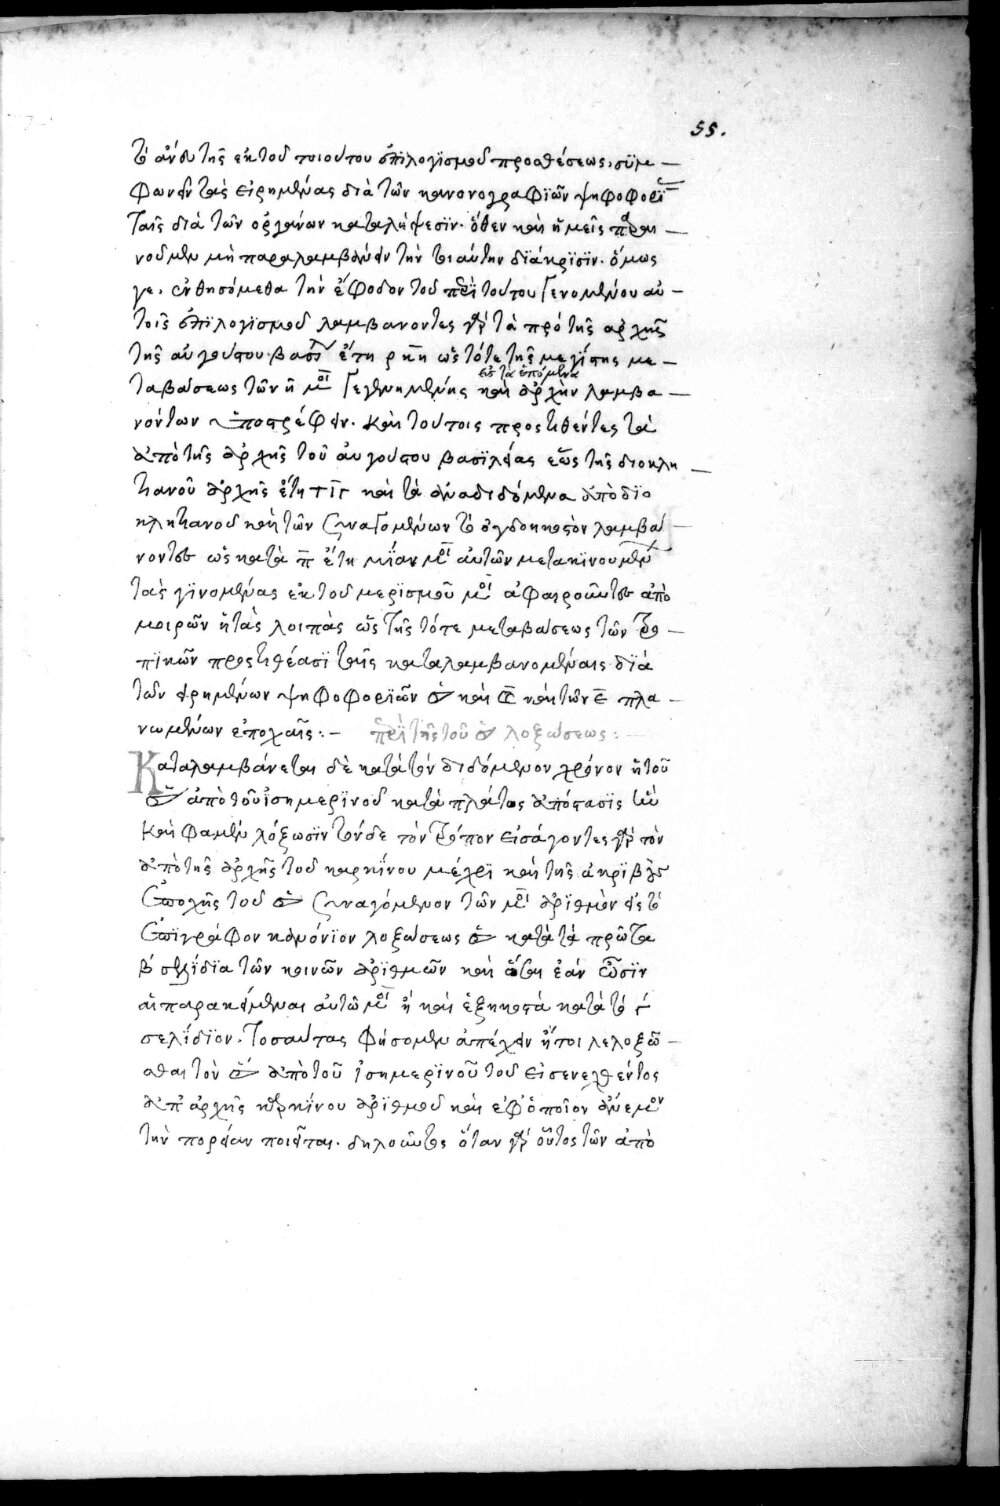 55.
τὸ ἄνευ τῆς ἐκ τοῦ τοιούτου ἐπιλογισμοῦ προσθέσεως, σύμ—
φωνεῖν τὰς εἰρημένας διὰ τῶν κανονογραφϊῶν ψηφοφορί
ταῖς διὰ τῶν ὀργάνων καταλήψεσϊν. ὅθεν καὶ ἡμεῖς παραι—
νοῦμεν μὴ παραλαμβάνειν τὴν τοιαύτην διάκρισϊν. ὅμως
γε, ἐνθησόμεθα τὴν ἔφοδον τοῦ περὶ τούτου γενομένου αὐ—
τοῖς ἐπϊλογϊσμοῦ λαμβάνοντες γὰρ τὰ πρὸ τῆς ἀρχῆς
τῆς αὐγούστου βασι ἔτη ρκη ὡς τότε τῆς μεγίστης με—
εἰς τὰ ἑπόμενα
ταβάσεως τῶν η μοι γεγενημένης καὶ ἀρχὴν λαμβα—
νόντων ὑποστρέφειν. καὶ τούτοις προστιθέντες τὰ
ἀπὸ τῆς ἀρχῆς τοῦ αὐγούστου βασϊλείας ἕως τῆς διοκλη—
τιανοῦ ἀρχῆς ἔτη τιγ καὶ τὰ ἀναδιδόμενα ἀπὸ διο
κλητιανοῦ καὶ τῶν συναγομένων τὸ ὀγδοηκοστὸν λαμβά—
νοντες ὡς κατὰ π ἔτη μϊαν μοι αὐτῶν μετακϊνουμεν
τὰς γϊνομένας ἐκ τοῦ μερϊσμοῦ μοι ἀφαιροῦντες ἀπὸ
μοιρῶν η τὰς λοιπὰς ὡς τῆς τότε μεταβάσεως τῶν τρο—
πϊκῶν προστιθέασϊ ταῖς καταλαμβανομέναις διὰ
τῶν εἰρημένων ψηφοφορϊῶν ☉ καὶ ☾ καὶ τῶν ε πλα—
νωμένων ἐποχαῖς:— περὶ τῆς τοῦ ☉ λοξώσεως:
Καταλαμβάνεται δὲ κατὰ τὸν διδόμενον χρόνον ἡ τοῦ
☉ ἀπὸ τοῦ ἰσημερϊνοῦ κατὰ πλάτος ἀπόστασϊς ἣν
καὶ φαμὲν λόξωσϊν τόνδε τὸν τρόπον εἰσάγοντες γὰρ τὸν
ἀπὸ τῆς ἀρχῆς τοῦ καρκίνου μέχρϊ καὶ τῆς ἀκρϊβοῦς
ἐποχῆς τοῦ ☉ συναγόμενον τῶν μοι ἀρϊθμὸν εἰς τὸ
ἐπϊγράφον κανόνϊον λοξώσεως ☉ κατὰ τὰ πρῶτα
β σελίδϊα τῶν κοινῶν ἀρϊθμῶν καὶ ὅσαι ἐὰν ὦσϊν
αἱ παρακείμεναι αὐτῶ μοι ἢ καὶ ἑξηκοστὰ κατὰ τὸ γ
σελίδϊον. τοσαύτας φήσομεν ἀπέχειν ἤτοι λελοξῶ—
σθαι τὸν ☉ ἀπὸ τοῦ ἰσημερϊνοῦ τοῦ εἰσενεχθέντος
ἀπ' ἀρχῆς καρκίνου ἀρϊθμοῦ καὶ ἐφ' ὁποῖον ἄνεμον
τὴν πορείαν ποιεῖται. δηλοῦντος ὅταν γὰρ οὗτος τῶν ἀπὸ